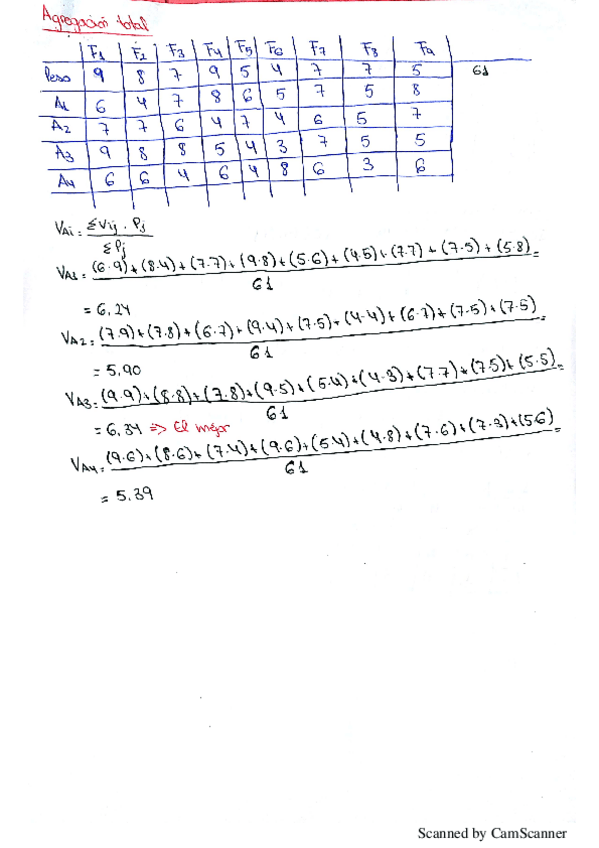 Agregación total
F1 F2 F3 F4 F5 F6 F7 F8 F9
Peso 9 8 7 9 5 4 7 7 5 61
A1 6 4 7 8 6 5 7 5 8
A2 7 7 6 4 7 4 6 5 7
A3 9 8 8 5 4 3 7 5 5
A4 6 6 4 6 4 8 6 3 6
VAi = ΣVij · Pj
ΣPj
VA1 = (6·9)+(8·4)+(7·7)+(9·8)+(5·6)+(4·5)+(7·7)+(7·5)+(5·8) =
61
= 6,24
VA2 = (7·9)+(7·8)+(6·7)+(9·4)+(7·5)+(4·4)+(6·7)+(7·5)+(7·5) =
61
= 5,90
VA3 = (9·9)+(8·8)+(7·8)+(9·5)+(5·4)+(4·3)+(7·7)+(7·5)+(5·5) =
61
= 6,34 => El mejor
VA4 = (9·6)+(8·6)+(7·4)+(9·6)+(5·4)+(4·8)+(7·6)+(7·3)+(5·6) =
61
= 5,39
Scanned by CamScanner